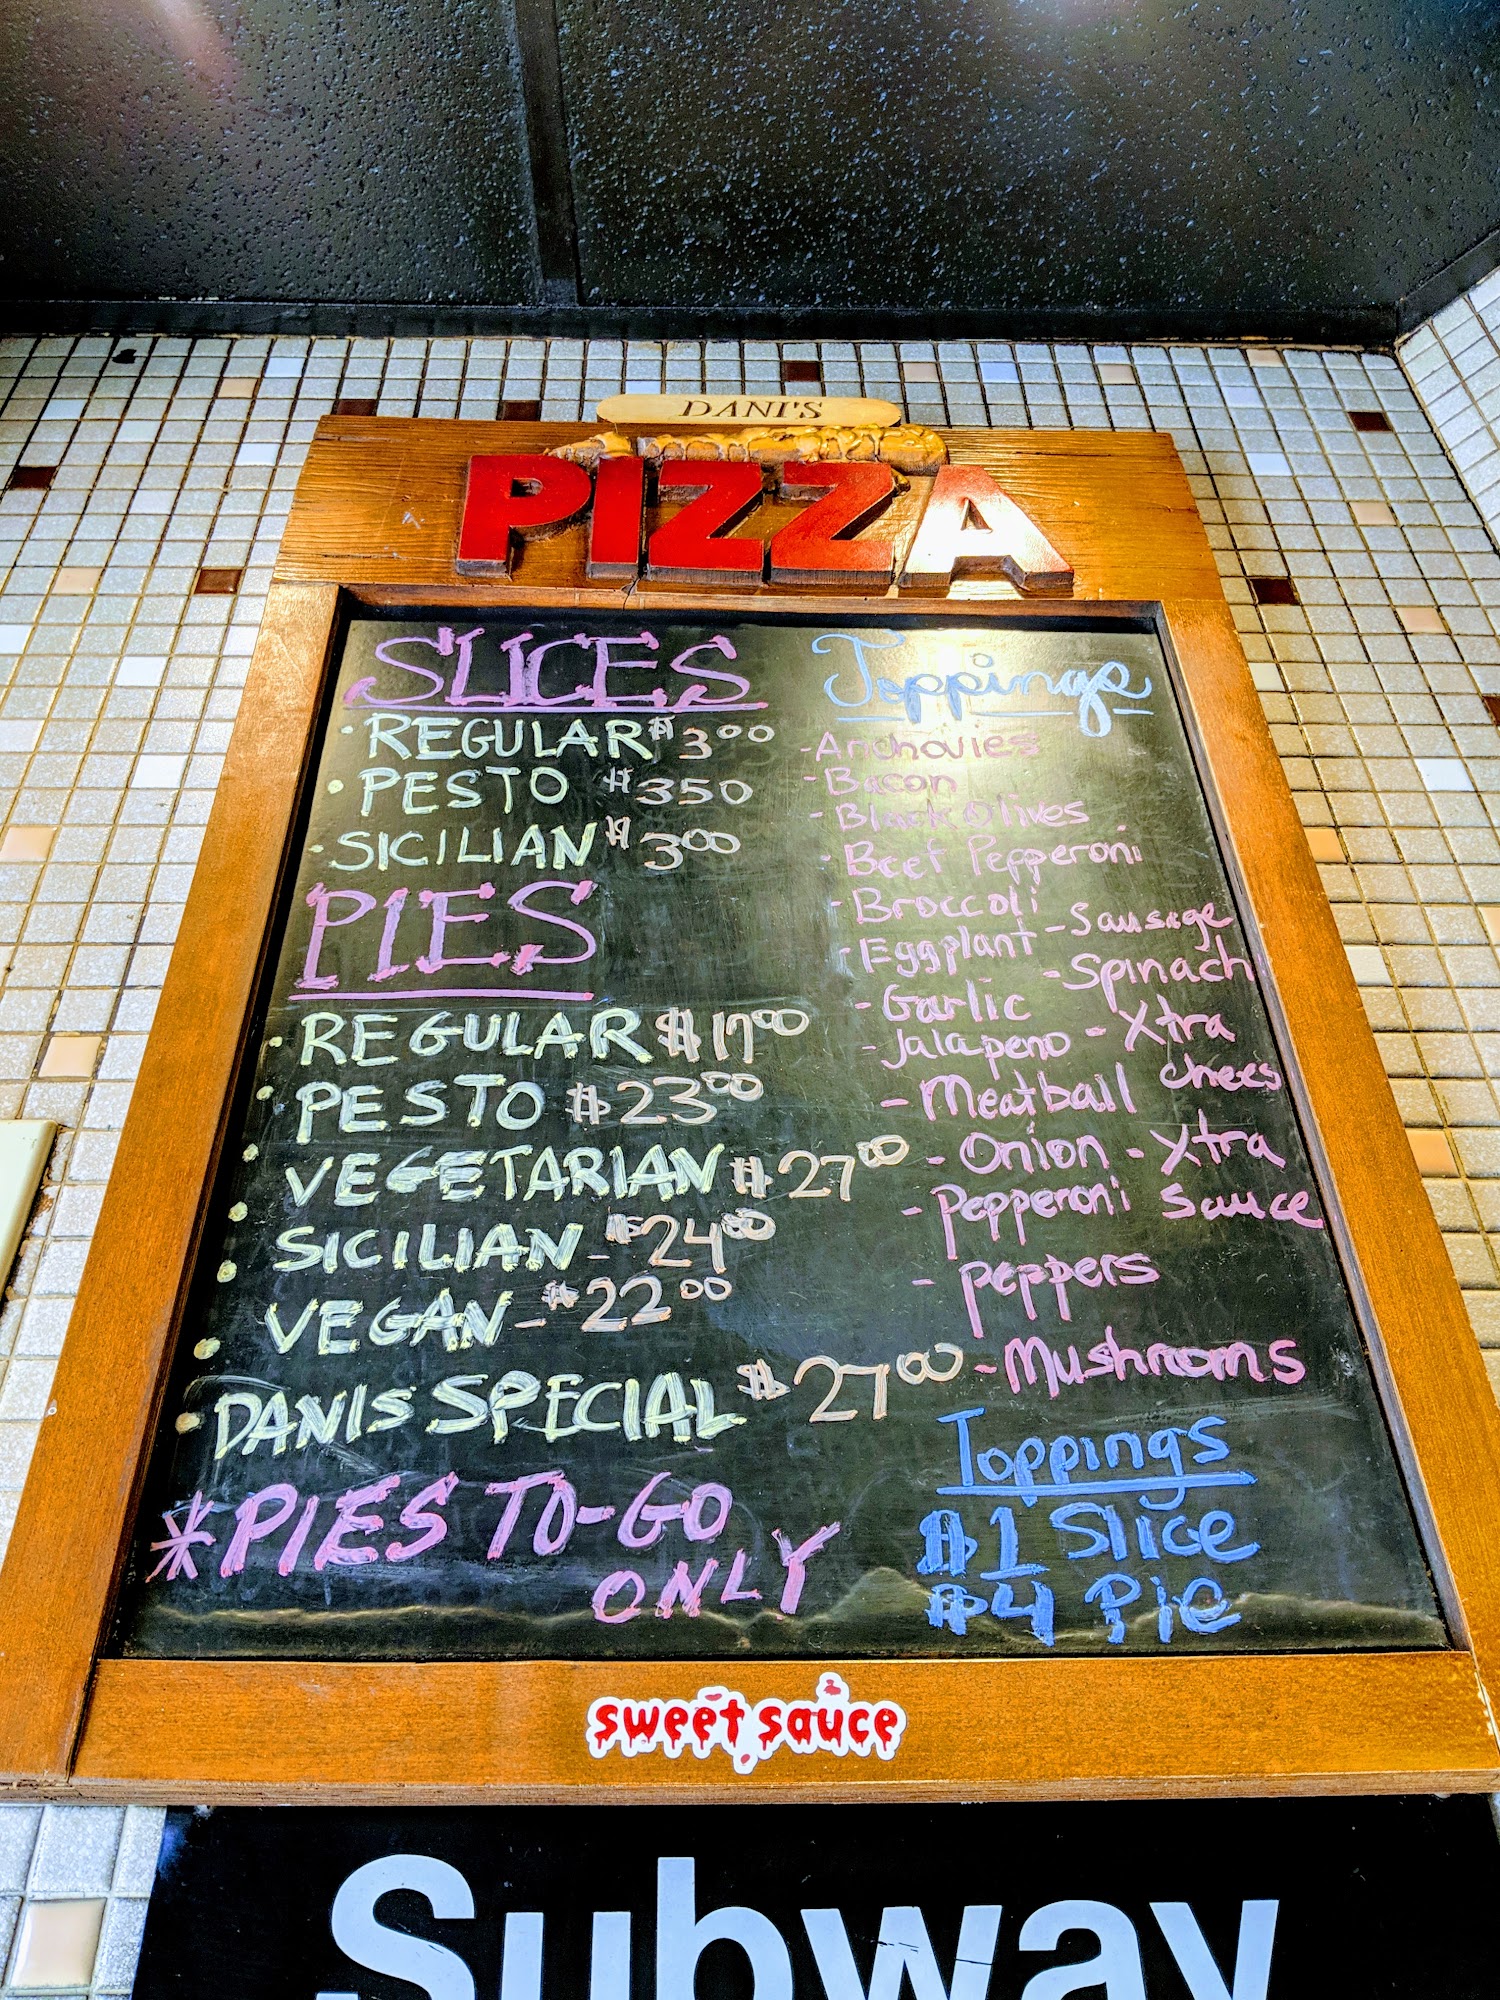 DANI'S
PIZZA
SLICES
• REGULAR $3 00
• PESTO $3 50
• SICILIAN $3 00
PIES
• REGULAR $17 00
• PESTO $23 00
• VEGETARIAN $27 00
• SICILIAN - $24 00
• VEGAN - $22 00
• DANIS SPECIAL $27 00
*PIES TO-GO
ONLY
Toppings
- Anchovies
- Bacon
- Black Olives
- Beef Pepperoni
- Broccoli
- Eggplant
- Garlic
- Jalapeno
- Meatball
- Onion
- Pepperoni
- Peppers
- Mushrooms
- Sausage
- Spinach
- Xtra
chees
- Xtra
Sauce
Toppings
$1 Slice
$4 Pie
sweet sauce
Subway